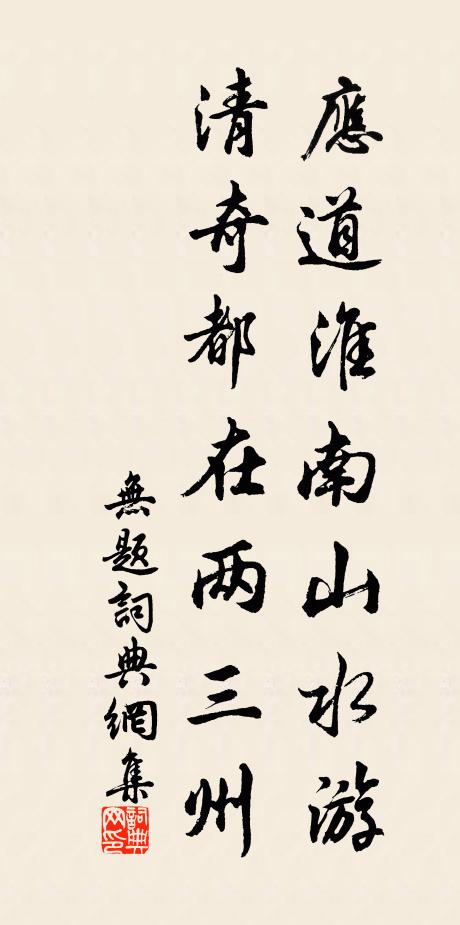 應道淮南山水游
清奇都在两三州
無题詞典網集
詞典网印